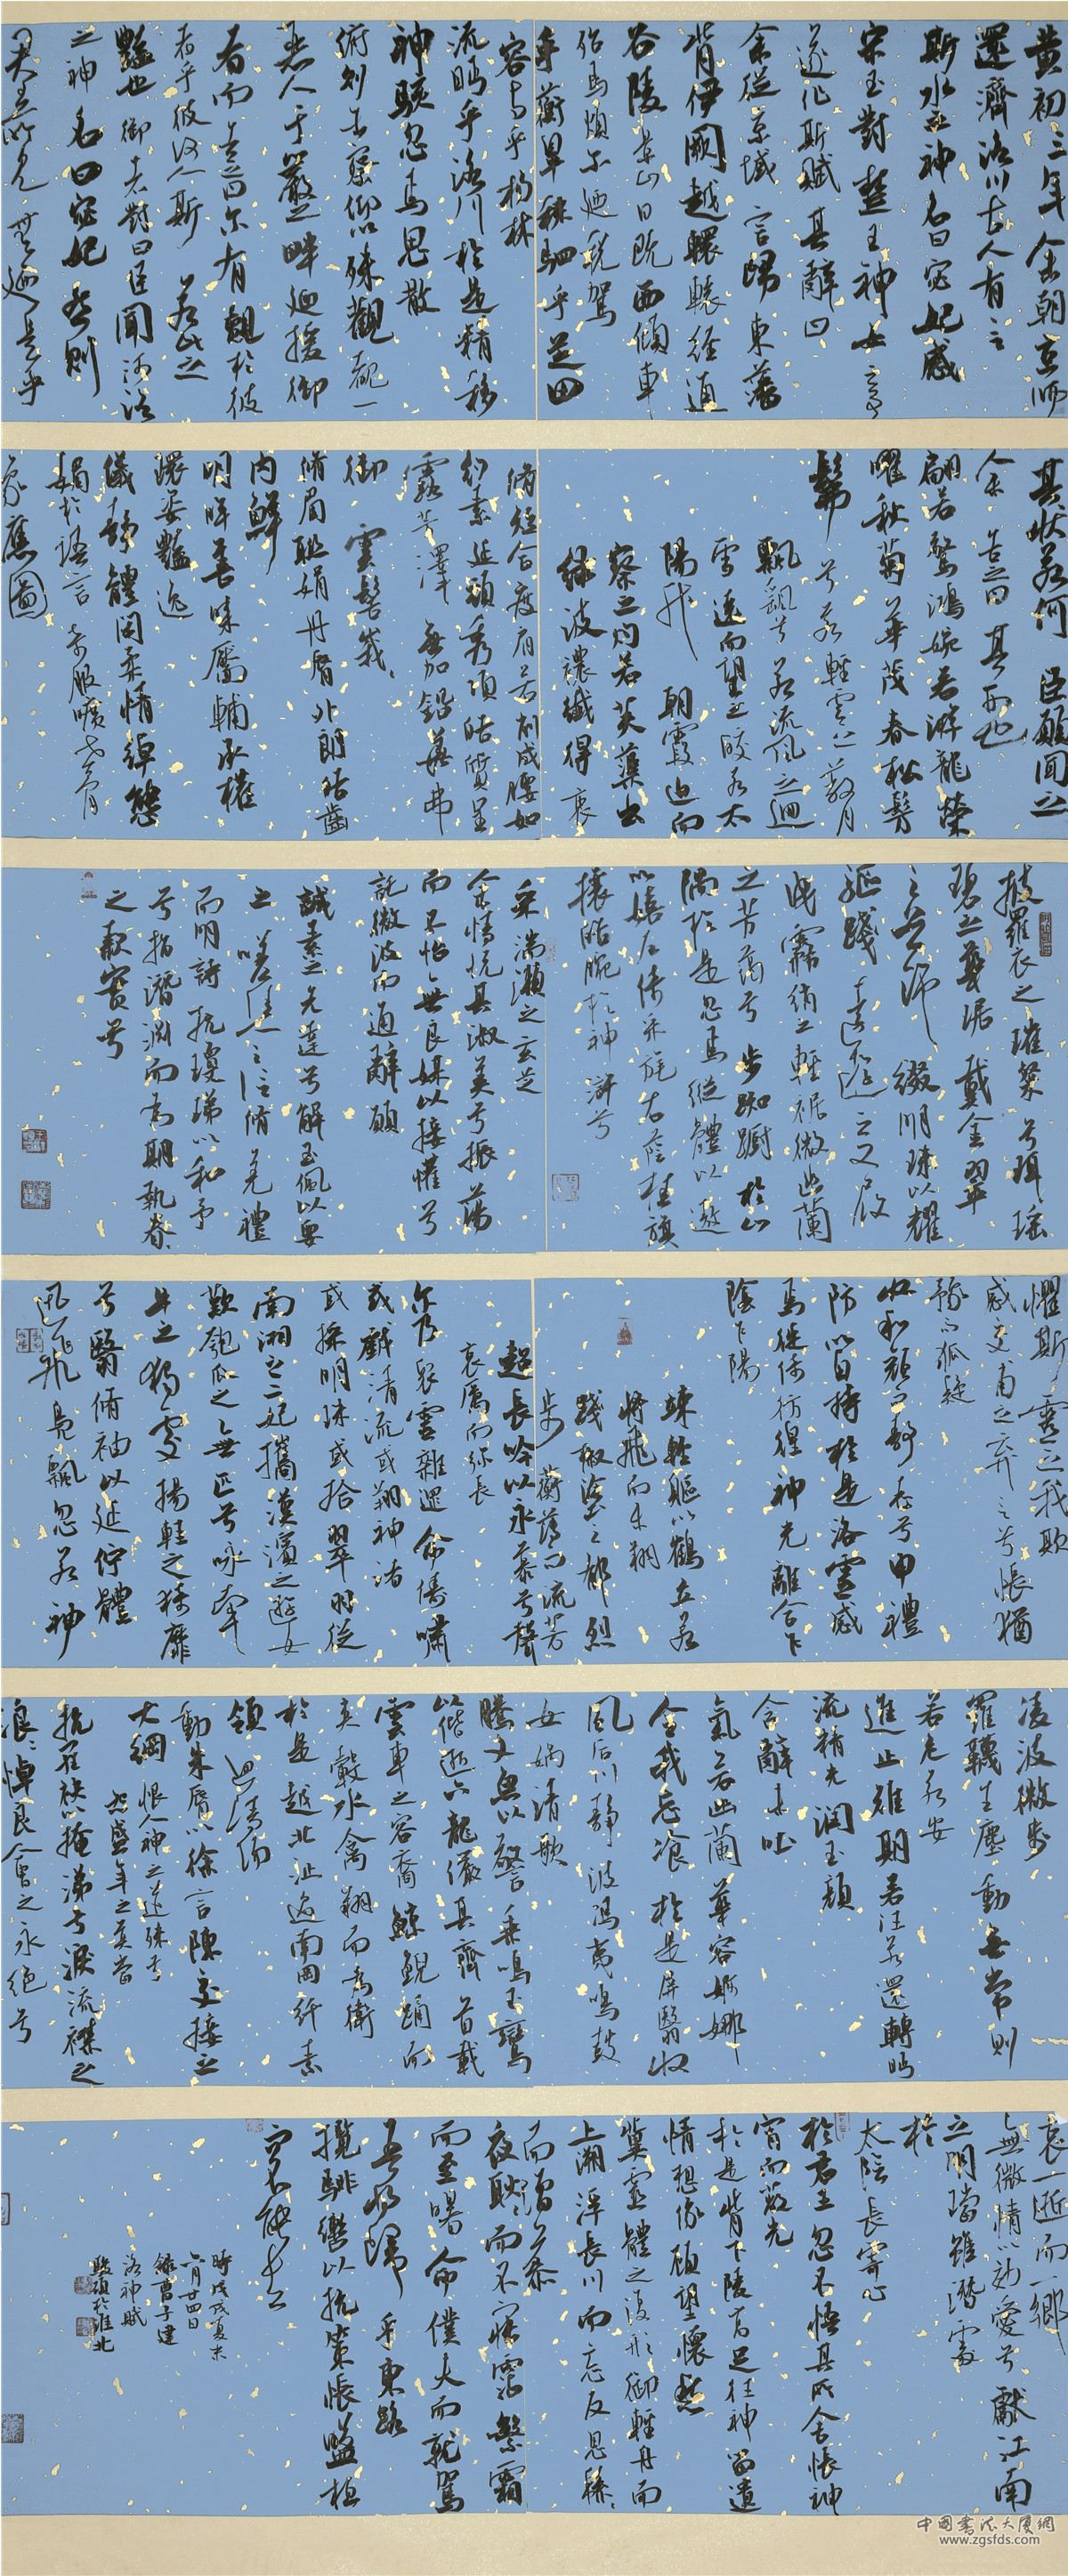 黄初三年余朝京師
還濟洛川古人有言
斯水之神名曰宓妃感
宋玉對楚王神女之事
遂作斯賦其辭曰
余從京域言歸東藩
背伊闕越轘轅經通
谷陵景山日既西傾車
殆馬煩爾迺稅駕
乎蘅皋秣駟乎芝田
容與乎楊林
流眄乎洛川於是精移
神駭忽焉思散
俯則未察仰以殊觀覩一
麗人于巖之畔迺援御
者而告之曰爾有覿於彼
者乎彼何人斯若此之
豔也御者對曰臣聞河洛
之神名曰宓妃然則
君王所見無迺是乎
其狀若何臣願聞之
余告之曰其形也
翩若驚鴻婉若游龍榮
曜秋菊華茂春松髣
髴兮若輕雲之蔽月
飄颻兮若流風之迴
雪遠而望之皎若太
陽升朝霞迫而
察之灼若芙蕖出
綠波襛纖得衷
脩短合度肩若削成腰如
約素延頸秀項皓質呈
露芳澤無加鉛華弗
御雲髻峩峩
脩眉聯娟丹脣外朗皓齒
內鮮
明眸善睞靨輔承權
瓌姿豔逸
儀靜體閑柔情綽態
媚於語言奇服曠世骨
象應圖
披羅衣之璀粲兮珥瑤
碧之華琚戴金翠
之首飾綴明珠以耀
軀踐遠遊之文履
曳霧綃之輕裾微幽蘭
之芳藹兮步踟躕於山
隅於是忽焉縱體以遨
以嬉左倚采旄右蔭桂旗
攘皓腕於神滸兮
采湍瀨之玄芝
余情悅其淑美兮振蕩
而不怡無良媒以接懽兮
託微波而通辭願
誠素之先達兮解玉佩以要
之嗟佳人之信脩羌禮
而明詩抗瓊珶以和予
兮指潛淵而為期執眷眷
之款實兮
懼斯靈之我欺
感交甫之棄言兮悵猶
豫而狐疑
收和顏而靜志兮申禮
防以自持於是洛靈感
焉徙倚彷徨神光離合乍
陰乍陽
竦輕軀以鶴立若
將飛而未翔
踐椒塗之郁烈
步蘅薄而流芳
超長吟以永慕兮聲
哀厲而彌長
爾乃眾靈雜遝命儔嘯
或戲清流或翔神渚
或採明珠或拾翠羽從
南湘之二妃攜漢濱之遊女
歎匏瓜之無匹兮詠牽
牛之獨處揚輕之猗靡
兮翳脩袖以延佇體
迅飛鳧飄忽若神
凌波微步
羅韈生塵動無常則
若危若安
進止難期若往若還轉眄
流精光潤玉顏
含辭未吐
氣若幽蘭華容婀娜
令我忘飡於是屏翳收
風川后靜波馮夷鳴鼓
女媧清歌
騰文魚以警乘鳴玉鸞
以偕逝六龍儼其齊首載
雲車之容裔鯨鯢踊而
夾轂水禽翔而為衛
於是越北沚過南岡紆素
領迴清陽
動朱脣以徐言陳交接之
大綱恨人神之道殊兮
怨盛年之莫當
抗羅袂以掩涕兮淚流襟之
浪浪悼良會之永絕兮
哀一逝而一鄉
無微情以效愛兮獻江南
之明璫雖潛處
於
太陰長寄心
於君王忽不悟其所舍悵神
宵而蔽光
於是背下陵高足往神留遺
情想像顧望懷愁
冀靈體之復形御輕舟而
上溯浮長川而忘反思緜緜
而增慕
夜耿耿而不寐霑繁霜
而至曙命僕夫而就駕
吾將歸乎東路
攬騑轡以抗策悵盤桓
而不能去
時戊戌夏末
六月廿四日
錄曹子建
洛神賦
於淮北
中国书法大厦網
www.zgsfds.com